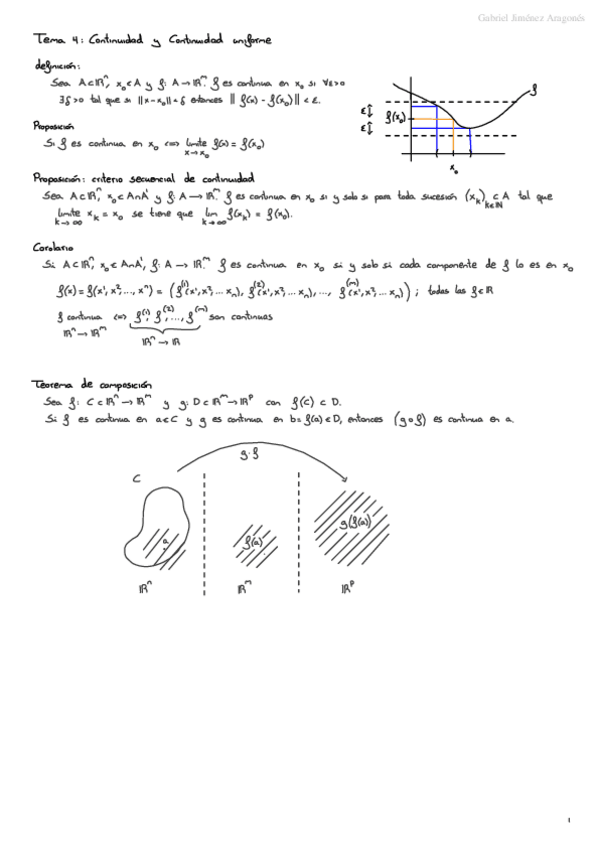 Gabriel Jiménez Aragonés
Tema 4: Continuidad y Continuidad uniforme
definición:
Sea A⊂ℝⁿ, x₀∈A y f: A→ℝᵐ. f es continua en x₀ si ∀ε>0
∃δ>0 tal que si ||x-x₀||<δ entonces ||f(x)-f(x₀)||<ε.
f
ε
f(x₀)
ε
x₀
Proposición
Si f es continua en x₀ <=> limite f(x) = f(x₀)
x→x₀
Proposición: criterio secuencial de continuidad
Sea A⊂ℝⁿ, x₀∈A∩A' y f: A→ℝᵐ. f es continua en x₀ si y solo si para toda sucesión (xₖ)ₖ∈ℕ ⊂ A tal que
limite xₖ = x₀ se tiene que lim f(xₖ) = f(x₀).
k→∞ k→∞
Corolario
Si A⊂ℝⁿ, x₀∈A∩A', f: A→ℝᵐ. f es continua en x₀ si y solo si cada componente de f lo es en x₀
f(x) = f(x¹, x², ..., xⁿ) = (f⁽¹⁾(x¹, x², ... xₙ), f⁽²⁾(x¹, x², ... xₙ), ..., f⁽ᵐ⁾(x¹, x², ... xₙ)); todas las f∈ℝ
f continua <=> f⁽¹⁾, f⁽²⁾, ..., f⁽ᵐ⁾ son continuas
ℝⁿ→ℝᵐ
ℝⁿ→ℝ
Teorema de composición
Sea f: C⊂ℝⁿ→ℝᵐ y g: D⊂ℝᵐ→ℝᵖ con f(C)⊂D.
Si f es continua en a∈C y g es continua en b=f(a)∈D, entonces (g∘f) es continua en a.
g∘f
C
a
f(a)
g(f(a))
ℝⁿ
ℝᵐ
ℝᵖ
1